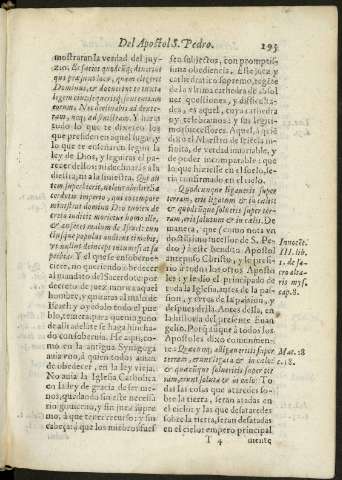 Del Apostol S. Pedro. 195
mostraran la verdad del juy-
zio. Et facies quodcūq; dixerint
qui præsunt loco, quem elegerit
Dominus, & docuerint te iuxta
legem eius, sequerisq; sententiam
eorum. Nec declinabis ad dexte-
ram, neq; ad sinistram. Y haras
todo lo que te dixeren los
que presiden en aquel lugar, y
lo que te enseñaren segun la
ley de Dios, y seguiras el pa-
recer dellos: ni declinaràs a la
diestra, ni a la siniestra. Qui au
tem superbierit, nolens obedire Sa-
cerdotis imperio, qui eo tempore
ministrat domino Deo tuo, ex de-
creto iudicis morietur homo ille,
& auferes malum de Israel: cun
ctusque populus audiens timebit,
vt nullus deinceps intumescat su
perbia. Y el que se ensoberue-
ciere, no queriendo obedecer
al mandato del Sacerdote, por
decreto de juez morira aquel
hombre, y quitaras al malo de
Israel: y oyendo todo el pue-
blo, temerà: para que ninguno
de alli adelãte se haga hincha-
do con soberuia. He aqui, co-
mo en la antigua Synagoga
auia vno, à quien todos auian
de obedecer, en la ley vieja.
No auia la Iglesia Catholica
en la ley de gracia de ser me-
nos, quedando sin este necessa-
rio gouierno, y sin juez supre-
mo, à quien recurrir: y sin
cabeça, à que los miembros fues
sen subjectos, con promptis-
sima obediencia. Este juez, y
cathedratico supremo, regẽte
de la vltima cathedra de absol
uer questiones, y dificulta-
des, es aquel, cuya cathedra
oy celebramos: y sus legiti-
mos successores. Aquel, à quiẽ
diò el Maestro de la vida in-
finita, de verdad inuariable, y
de poder incomparable: que
lo que hiziesse en el suelo, se-
ria confirmado en el cielo.
Quodcunque ligaueris super
terram, erit ligatum & in cælis:
& quodcũque solueris super ter
ram, erit solutum & in cælis. De
manera, que (como nota vn
doctissimo successor de S. Pe-
dro) à este bendito Apostol
antepuso Christo, y le presi-
rio à todos los otros Aposto
les: y le dio el principado de
toda la Iglesia, antes de la pas
sion, y enros de la passion, y
despues della. Antes desta, en
la historia del presente Euan-
gelio. Porq̃ aunque à todos los
Apostoles dixo comunmen-
te: Quæcumq; alligaueritis super
terram, erunt ligata & in cælo:
& quæcũque solueritis super ter
ram, erunt soluta & in cælo: To
das las cosas que atàredes so-
bre la tierra, seràn atadas en
el cielo: y las que desataredes
sobre la tierra, seràn desatadas
en el cielo: empero principal
Innocẽt.
III. lib.
1. de sa-
cro alta-
ris myst.
cap. 8.
Mat. 18
c. 18.
T 4
mente